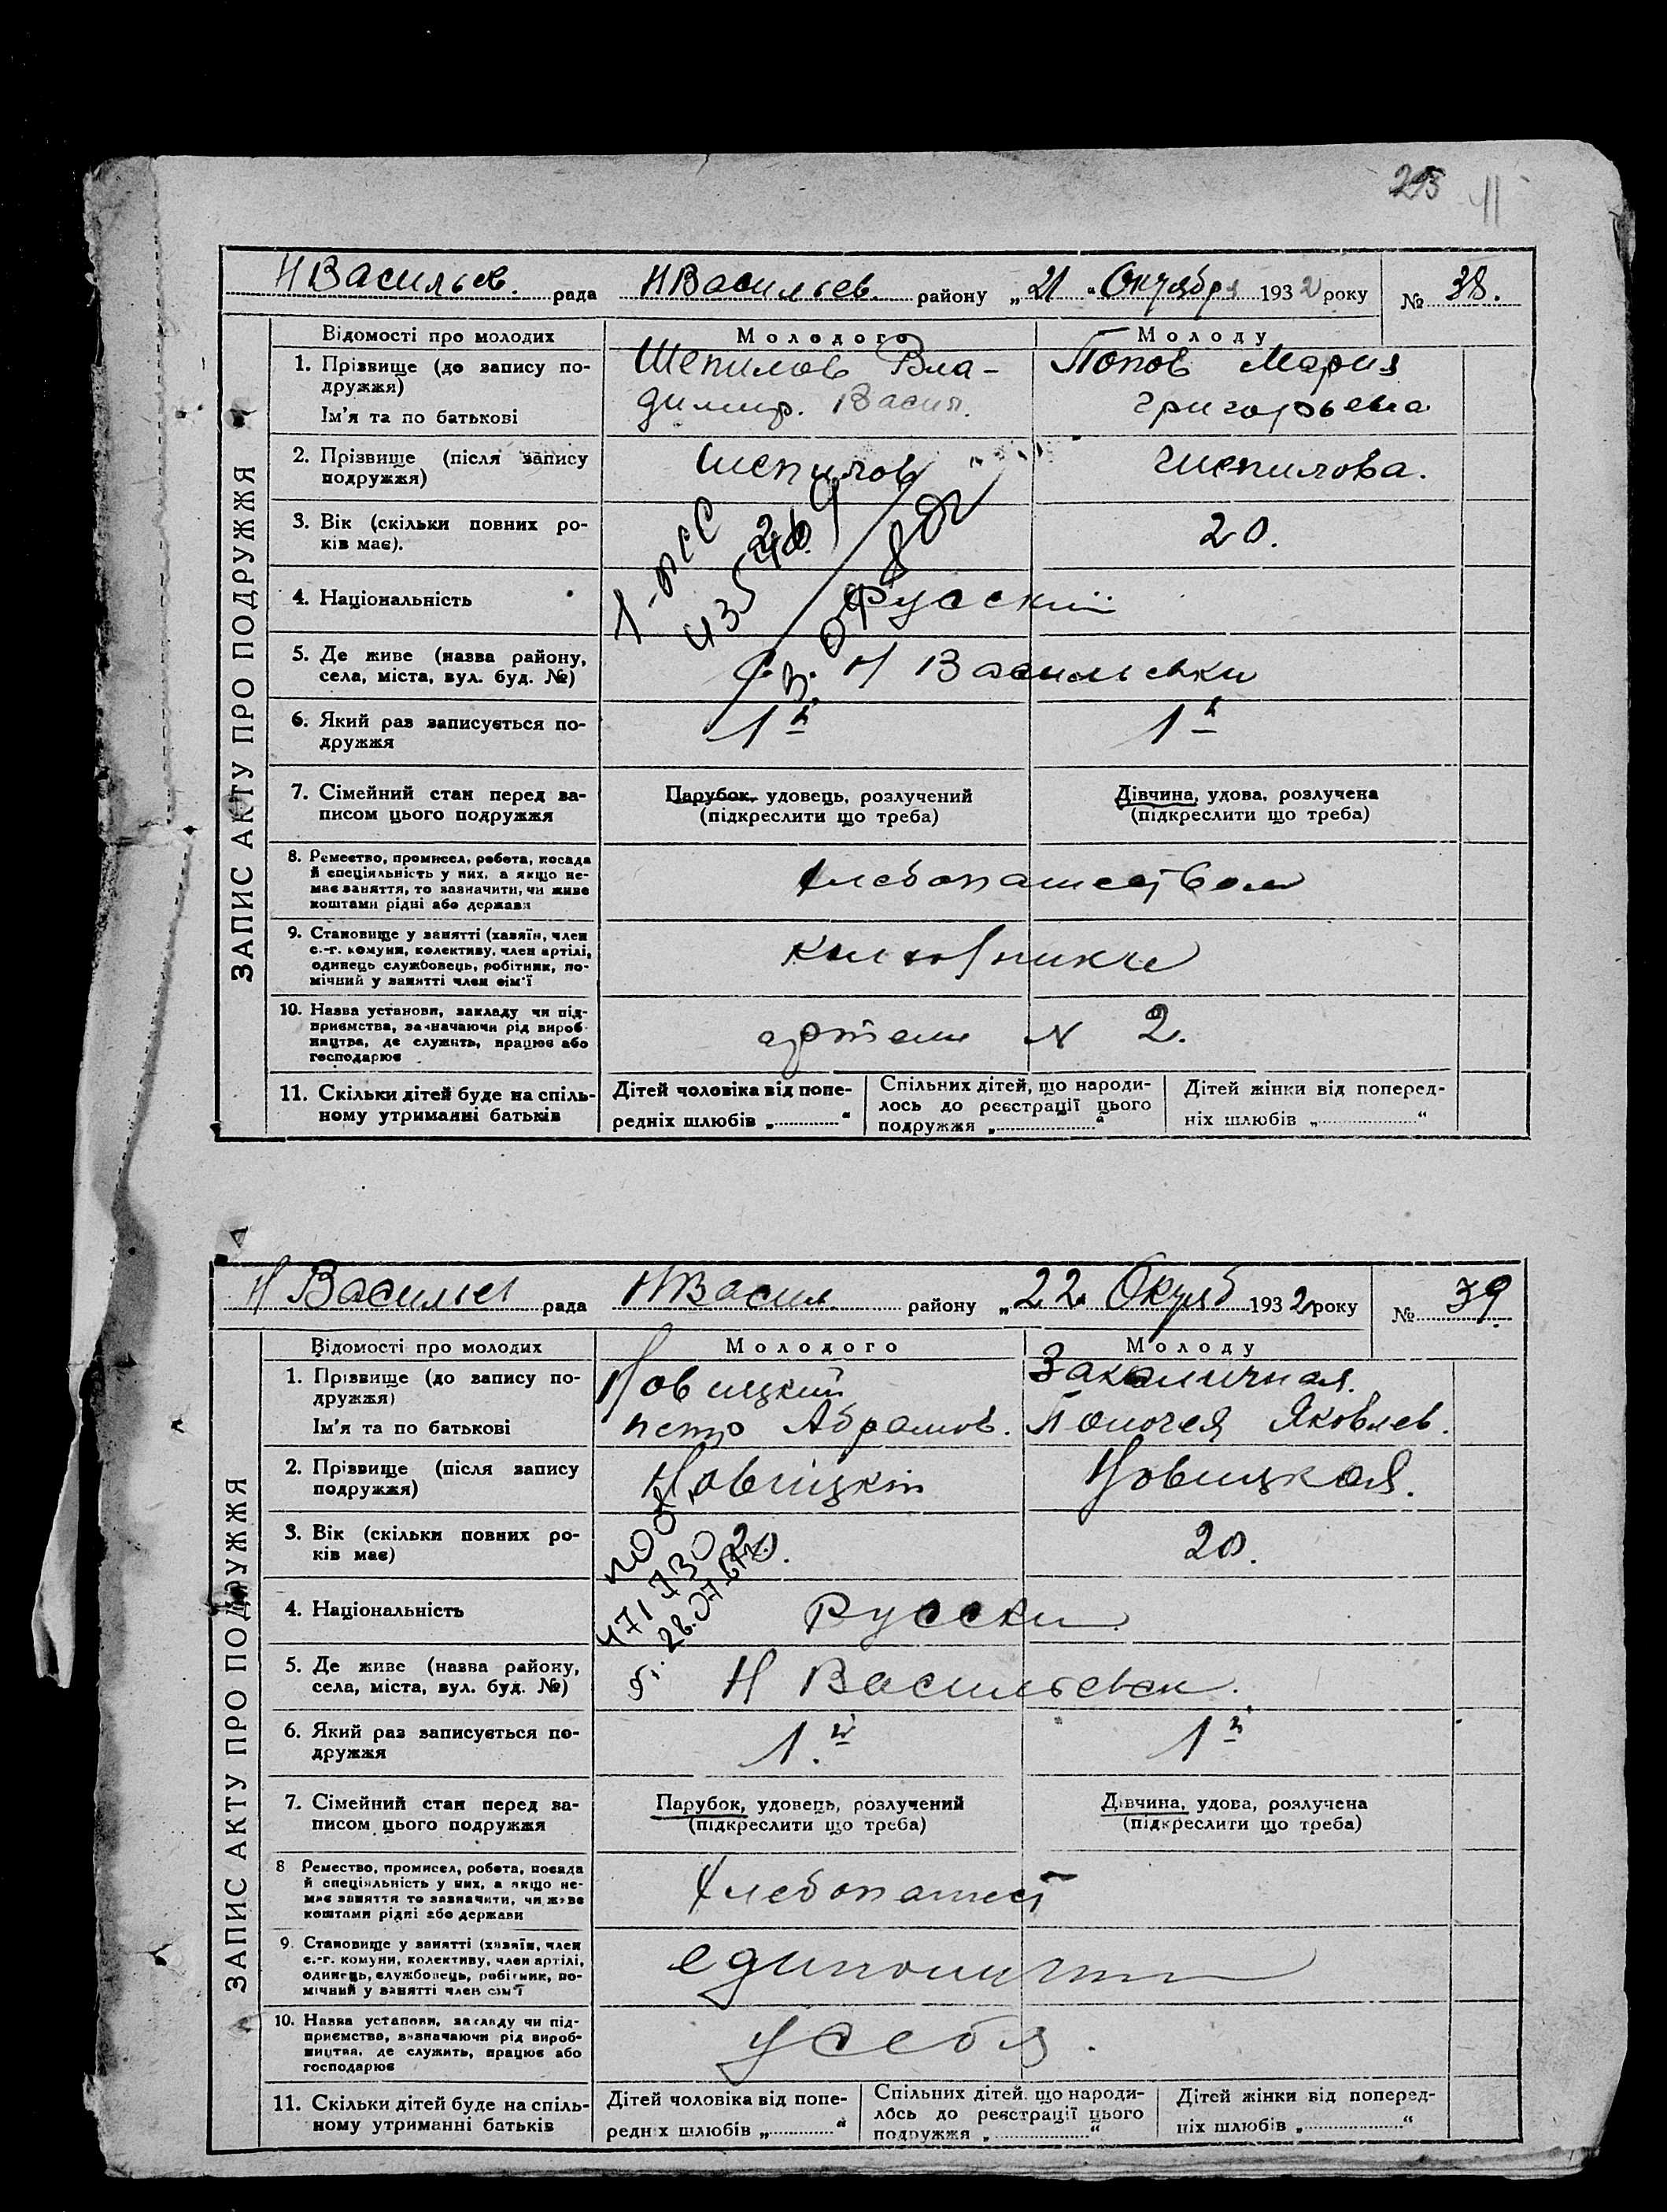 23 41
Н Васильев. рада Н Васильев. району „21" Октября 1932 року № 38.
ЗАПИС АКТУ ПРО ПОДРУЖЖЯ
Відомості про молодих Молодого Молоду
1. Прізвище (до запису по- Шепилов Вла- Попов Мария
дружжя)
Ім'я та по батькові димир. Васил. Григорьевна
2. Прізвище (після запису Шепилов Шепилова.
подружжя)
3. Вік (скільки повних ро- 20.
ків має).
4. Національність Русский
5. Де живе (назва району, Н Васильевки
села, міста, вул. буд. №)
6. Який раз записується по- 1й 1й
дружжя
7. Сімейний стан перед за- Парубок, удовець, розлучений Дівчина, удова, розлучена
писом цього подружжя (підкреслити що треба) (підкреслити що треба)
8. Ремество, промисел, робота, посада
й спеціяльність у них, а якщо не- Хлебопашеством
має заняття, то зазначити, чи живе
коштами рідні або держави
9. Становище у занятті (хазяїн, член
с.-г. комуни, колективу, член артілі,
одинець службовець, робітник, по-
мічний у занятті член сім'ї
10. Назва установи, закладу чи під-
приємства, зазначаючи рід вироб- артели № 2.
ництва, де служить, працює або
господарює
11. Скільки дітей буде на спіль- Дітей чоловіка від попе- Спільних дітей, що народи- Дітей жінки від поперед-
ному утриманні батьків редніх шлюбів „ “ лось до реєстрації цього ніх шлюбів „ “
подружжя „ “
Н Васильев рада Н Васил. району „22 Октяб 1932 року № 39.
ЗАПИС АКТУ ПРО ПОДРУЖЖЯ
Відомості про молодих Молодого Молоду
1. Прізвище (до запису по- Новицкий Закаличная.
дружжя)
Ім'я та по батькові Петро Абрамов. Яковлев.
2. Прізвище (після запису Новицкий Новицкая.
подружжя)
3. Вік (скільки повних ро- 20. 20.
ків має)
4. Національність Русски
5. Де живе (назва району, Н Васильевки.
села, міста, вул. буд. №)
6. Який раз записується по- 1.й 1й
дружжя
7. Сімейний стан перед за- Парубок, удовець, розлучений Дівчина, удова, розлучена
писом цього подружжя (підкреслити що треба) (підкреслити що треба)
8 Ремество, промисел, робота, посада
й спеціяльність у них, а якщо не- Хлебопашест
має заняття то зазначити, чи живе
коштами рідні або держави
9. Становище у занятті (хазяїн, член
с.-г. комуни, колективу, член артілі, единоличник
одинець, службовець, робітник, по-
мічний у занятті член сім'ї
10. Назва установи, закладу чи під-
приємства, зазначаючи рід вироб- у себя.
ництва, де служить, працює або
господарює
11. Скільки дітей буде на спіль- Дітей чоловіка від попе- Спільних дітей, що народи- Дітей жінки від поперед-
ному утриманні батьків редніх шлюбів „ “ лось до реєстрації цього ніх шлюбів „ “
подружжя „ “